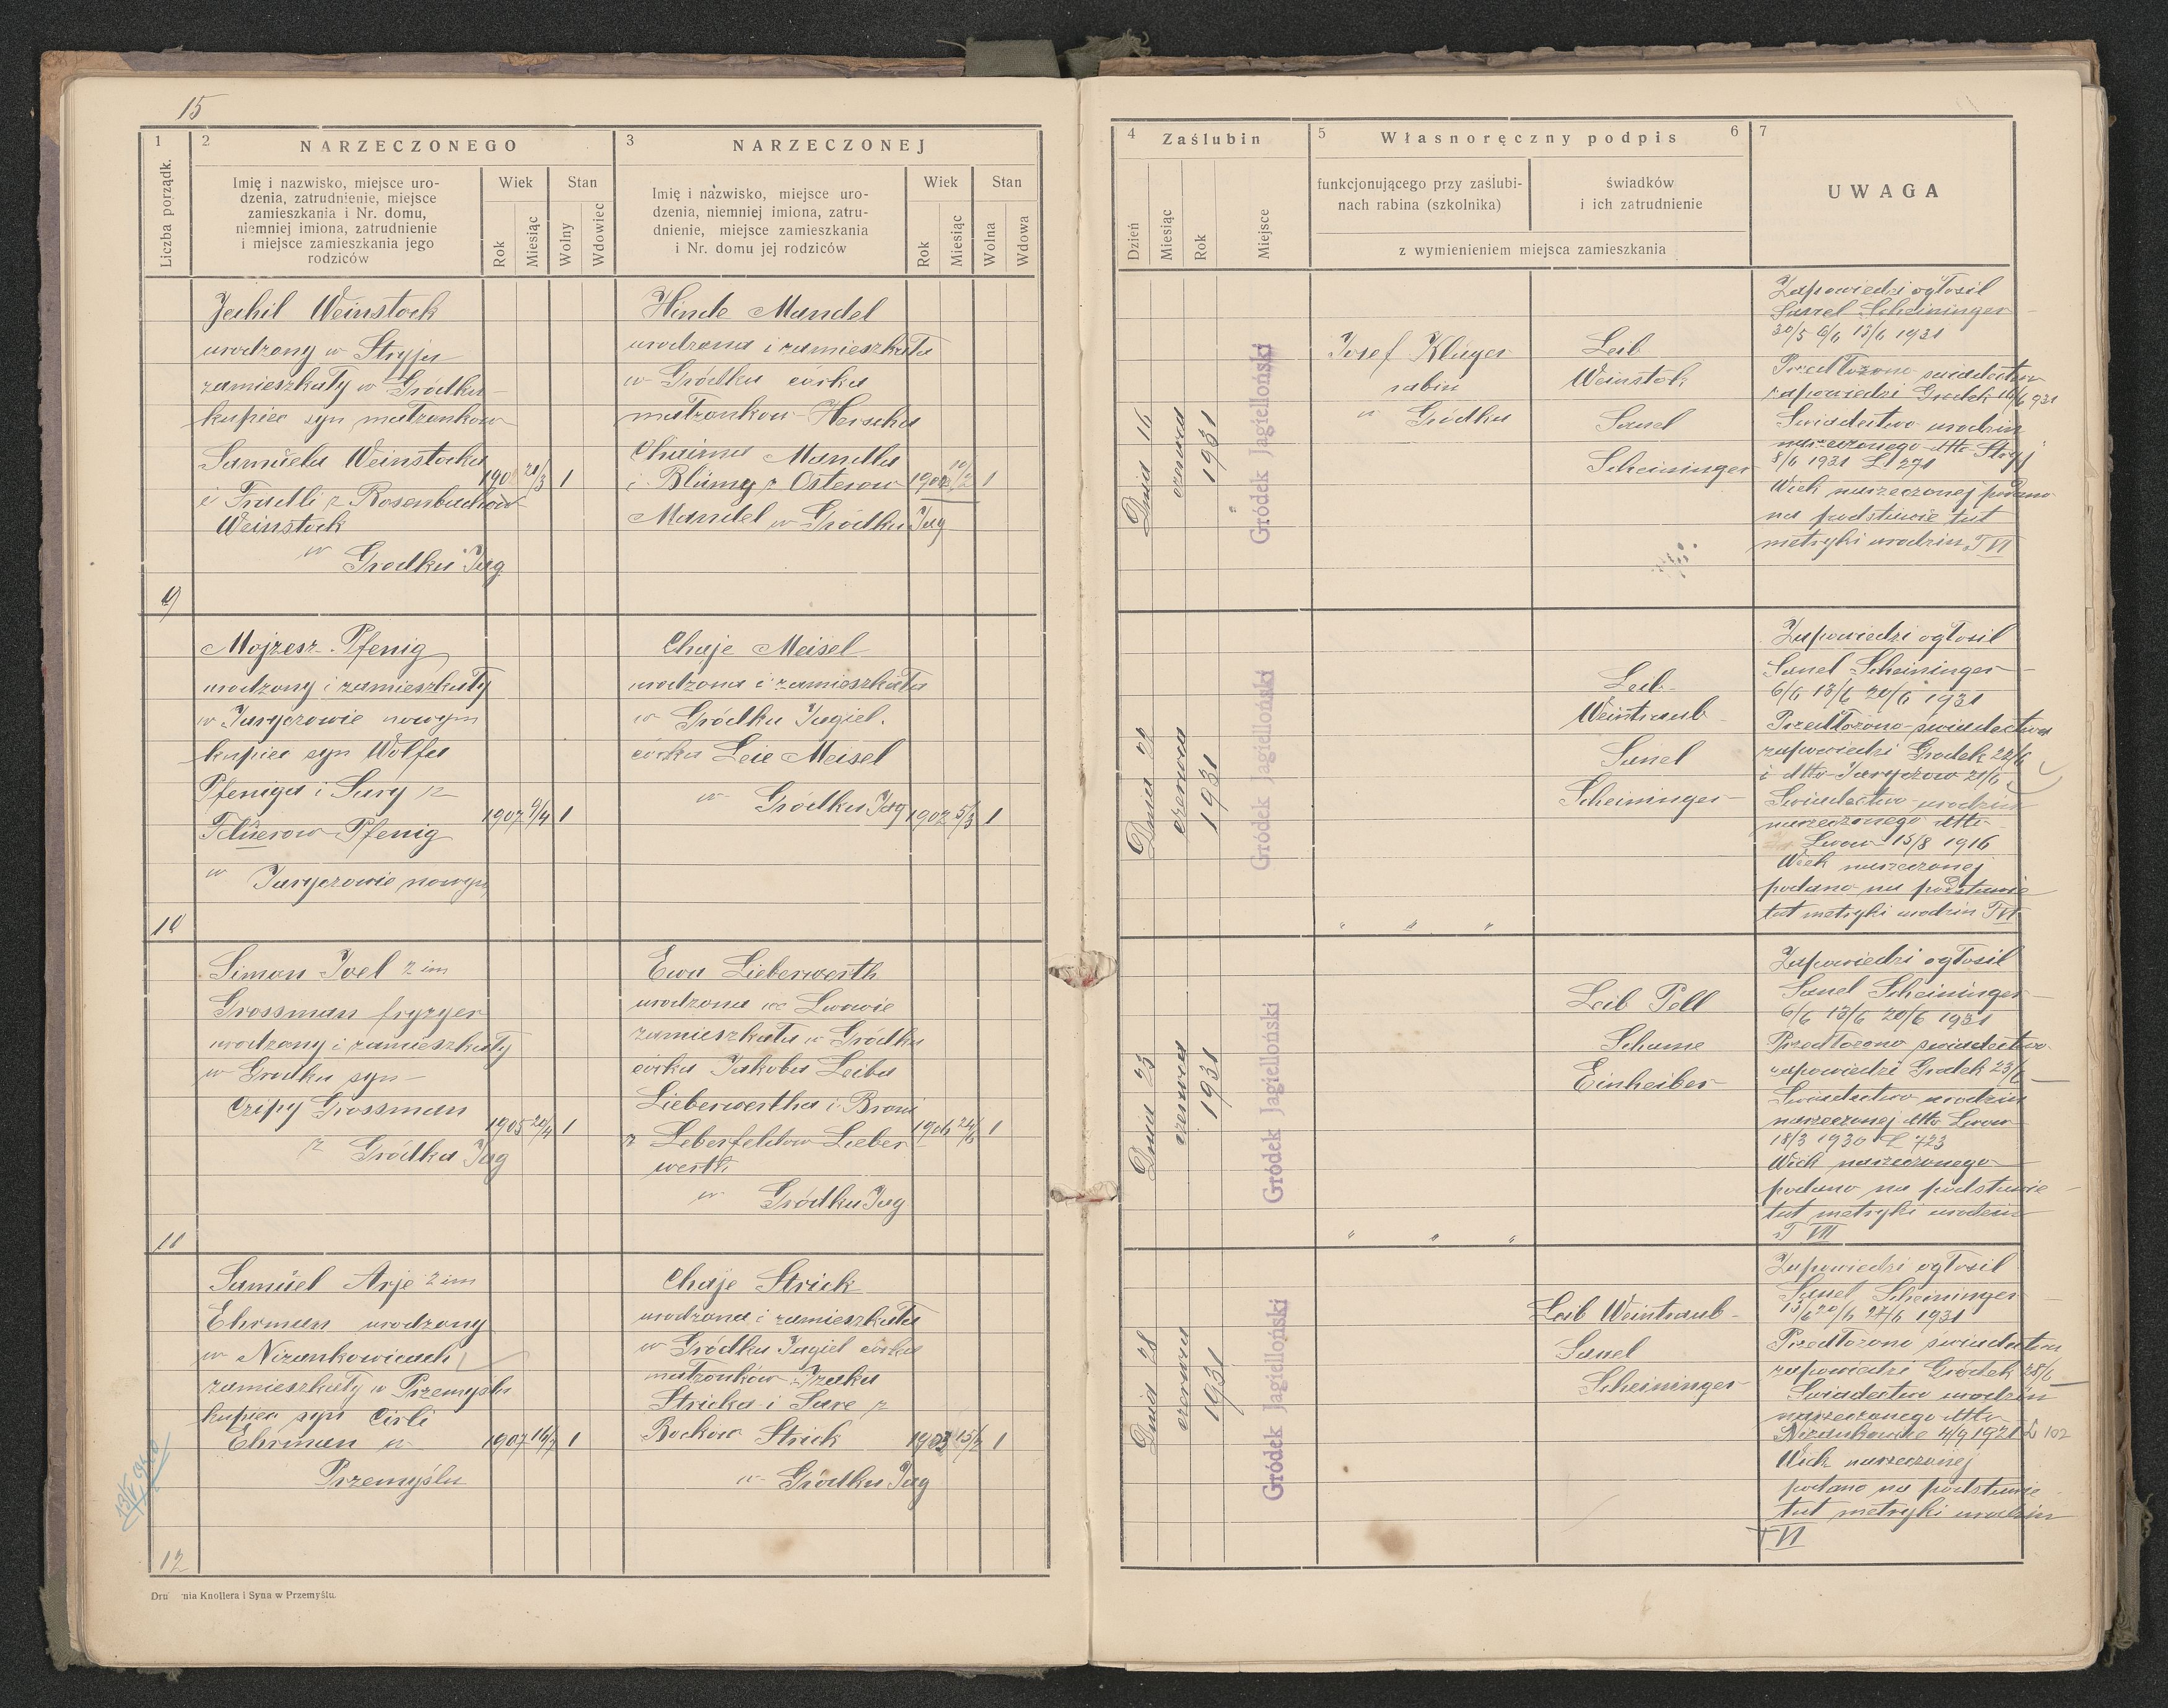 15
1
Liczba porządk.
2
NARZECZONEGO
Imię i nazwisko, miejsce uro-
dzenia, zatrudnienie, miejsce
zamieszkania i Nr. domu,
niemniej imiona, zatrudnienie
i miejsce zamieszkania jego
rodziców
Wiek
Rok
Miesiąc
Stan
Wolny
Wdowiec
3
NARZECZONEJ
Imię i nazwisko, miejsce uro-
dzenia, niemniej imiona, zatru-
dnienie, miejsce zamieszkania
i Nr. domu jej rodziców
Wiek
Rok
Miesiąc
Stan
Wolna
Wdowa
4
Zaślubin
Dzień
Miesiąc
Rok
Miejsce
5
Własnoręczny podpis
6
funkcjonującego przy zaślubi-
nach rabina (szkolnika)
świadków
i ich zatrudnienie
z wymienieniem miejsca zamieszkania
7
UWAGA
9
Jechil Weinstock
urodzony w Stryju
zamieszkały w Gródku
kupiec syn małżonków
Samuela Weinstocka
i Frudli z Rosenbuchów
Weinstock
w Grodku Jag
20/3 1
Hinde Mandel
urodzona i zamieszkała
w Gródku córka
małżonków Herscha
Chaima Mandla
i Blümy z Osterow
Mandel w Gródku Jag
10/2 1
Dnia 16
czerwca
1931
Gródek Jagielloński
Josef Kluger
rabin
w Gródku
Leib
Weinstok
Sanel
Scheininger
Zapowiedzi ogłosil
Sanel Scheininger
30/5 6/6 13/6 1931
Przedłożono swiadectwo
zapowiedzi Grodek 16/6 931
Swiadectwo urodzin
narzeczonego dtto Stryj
8/6 1931 L 271
Wiek narzeczonej podano
na podstawie tut
metryki urodzin T VI
10
Mojzesz Pfenig
urodzony i zamieszkały
w Jaryczowie nowym
kupiec syn Wolfa
Pfeniga i Sary z
Felzerow Pfenig
w Jaryczowie nowym
1907 9/4 1
Chaje Meisel
urodzona i zamieszkała
w Gródku Jagiel.
córka Leie Meisel
w Gródku Jag
1902 5/3 1
Dnia 22
czerwca
1931
Gródek Jagielloński
" " "
Leib
Weintraub
Sanel
Scheininger
Zapowiedzi ogłosil
Sanel Scheininger
6/6 13/6 20/6 1931
Przedłożono swiadectwa
zapowiedzi Grodek 22/6
i dtto Jaryczow 21/6
Swiadectwo urodzin
narzeczonego dtto
Lwow 15/8 1916
Wiek narzeczonej
podano na podstawie
tut metryki urodzin T VI
11
Simon Joel 2 im
Grossman fryzyer
urodzony i zamieszkały
w Grodku syn
Czipy Grossman
z Gródka Jag
1905 20/4 1
Ewa Lieberwerth
urodzona we Lwowie
zamieszkała w Gródku
córka Jakoba Leiba
Lieberwertha i Broni
z Leberfeldow Lieber
werth
w Gródku Jag
1906 24/6 1
Dnia 23
czerwca
1931
Gródek Jagielloński
" " "
Leib Pell
Schame
Einheiber
Zapowiedzi ogłosil
Sanel Scheininger
6/6 13/6 20/6 1931
Przedłożono swiadectwo
zapowiedzi Grodek 23/6
Swiadectwo urodzin
narzeczonej dtto Lwow
18/3 1930 L 723
Wiek narzeczonego
podano na podstawie
tut metryki urodzin
T VII
12
Samüel Arje 2 im
Ehrman urodzony
w Nizankowicach
zamieszkały w Przemyslu
kupiec syn Cirli
Ehrman w
Przemyślu
1907 16/7 1
Chaje Strick
urodzona i zamieszkała
w Gródku Jagiel córka
małżonków Izaka
Stricka i Sare z
Bockow Strick
w Gródku Jag
1903 15/2 1
Dnia 28
czerwca
1931
Gródek Jagielloński
Leib Weintraub
Sanel
Scheininger
Zapowiedzi ogłosil
Sanel Scheininger
13/6 20/6 27/6 1931
Przedłożono swiadectwo
zapowiedzi Gródek 28/6
Swiadectwo urodzin
narzeczonego dtto
Nizankowice 4/9 1921 L 102
Wiek narzeczonej
podano na podstawie
tut metryki urodzin
T VI
nia Knollera i Syna w Przemyślu.